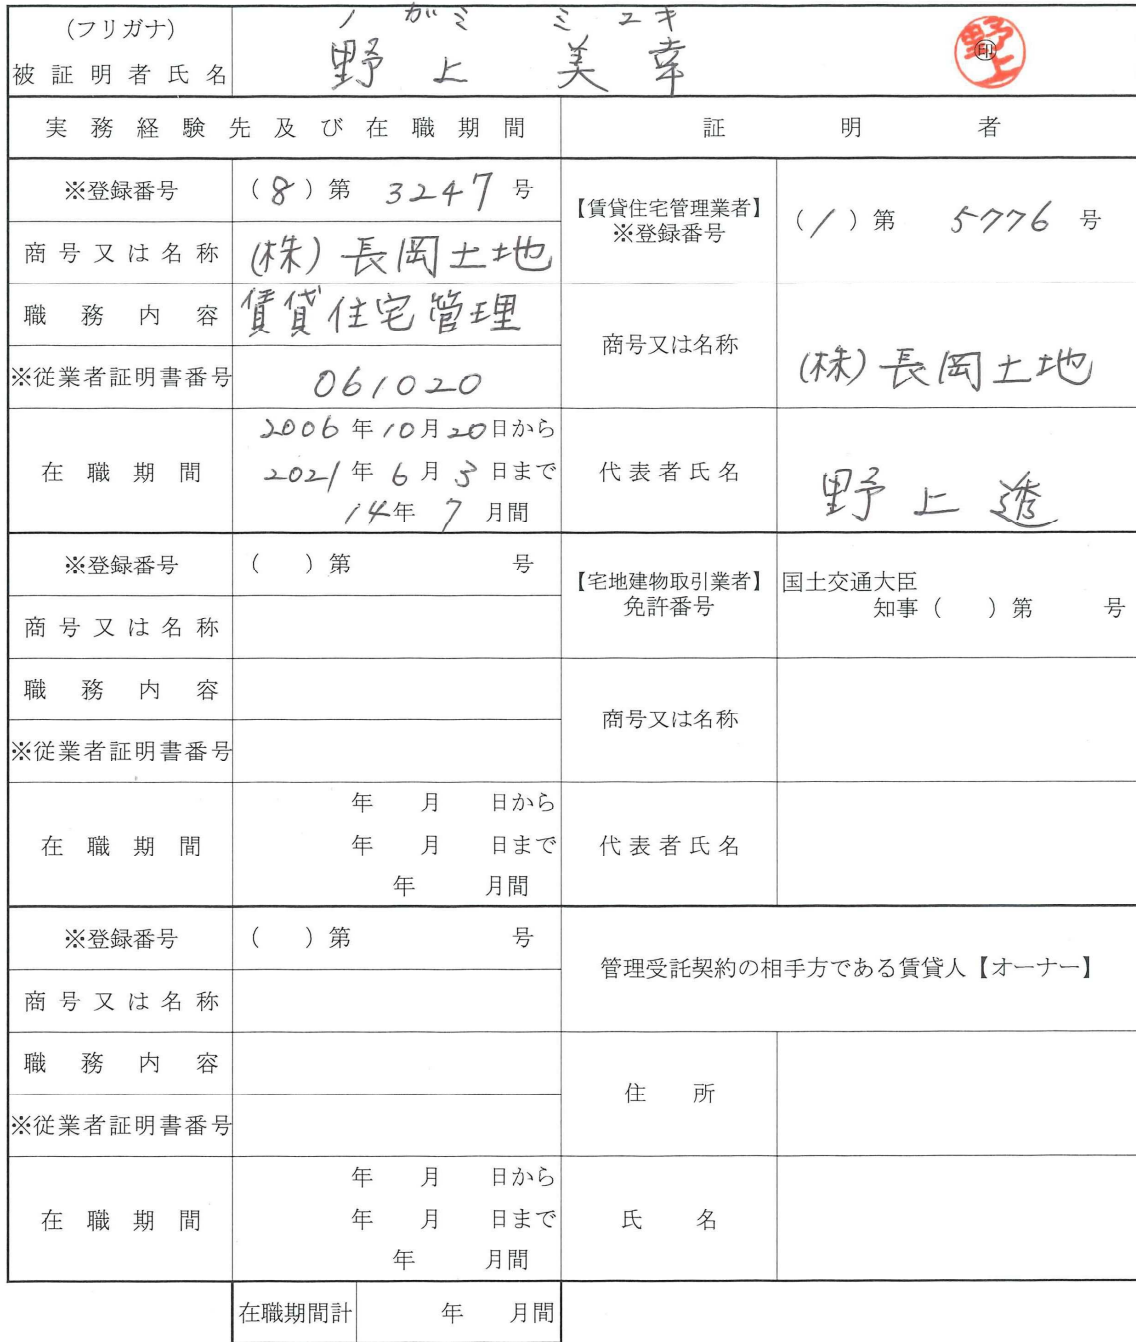 (フリガナ) ノガミ ミユキ
被証明者氏名 野上 美幸 ㊞ 野上
実務経験先及び在職期間 証明者
※登録番号 (8)第 3247 号 【賃貸住宅管理業者】 ※登録番号 (1)第 5776 号
商号又は名称 (株)長岡土地
職務内容 賃貸住宅管理 商号又は名称 (株)長岡土地
※従業者証明書番号 061020
在職期間 2006年10月20日から
2021年6月3日まで 代表者氏名 野上透
14年7月間
※登録番号 ( )第 号 【宅地建物取引業者】 免許番号 国土交通大臣
知事( )第 号
商号又は名称
職務内容 商号又は名称
※従業者証明書番号
在職期間 年 月 日から
年 月 日まで 代表者氏名
年 月間
※登録番号 ( )第 号 管理受託契約の相手方である賃貸人【オーナー】
商号又は名称
職務内容 住所
※従業者証明書番号
在職期間 年 月 日から
年 月 日まで 氏名
年 月間
在職期間計 年 月間